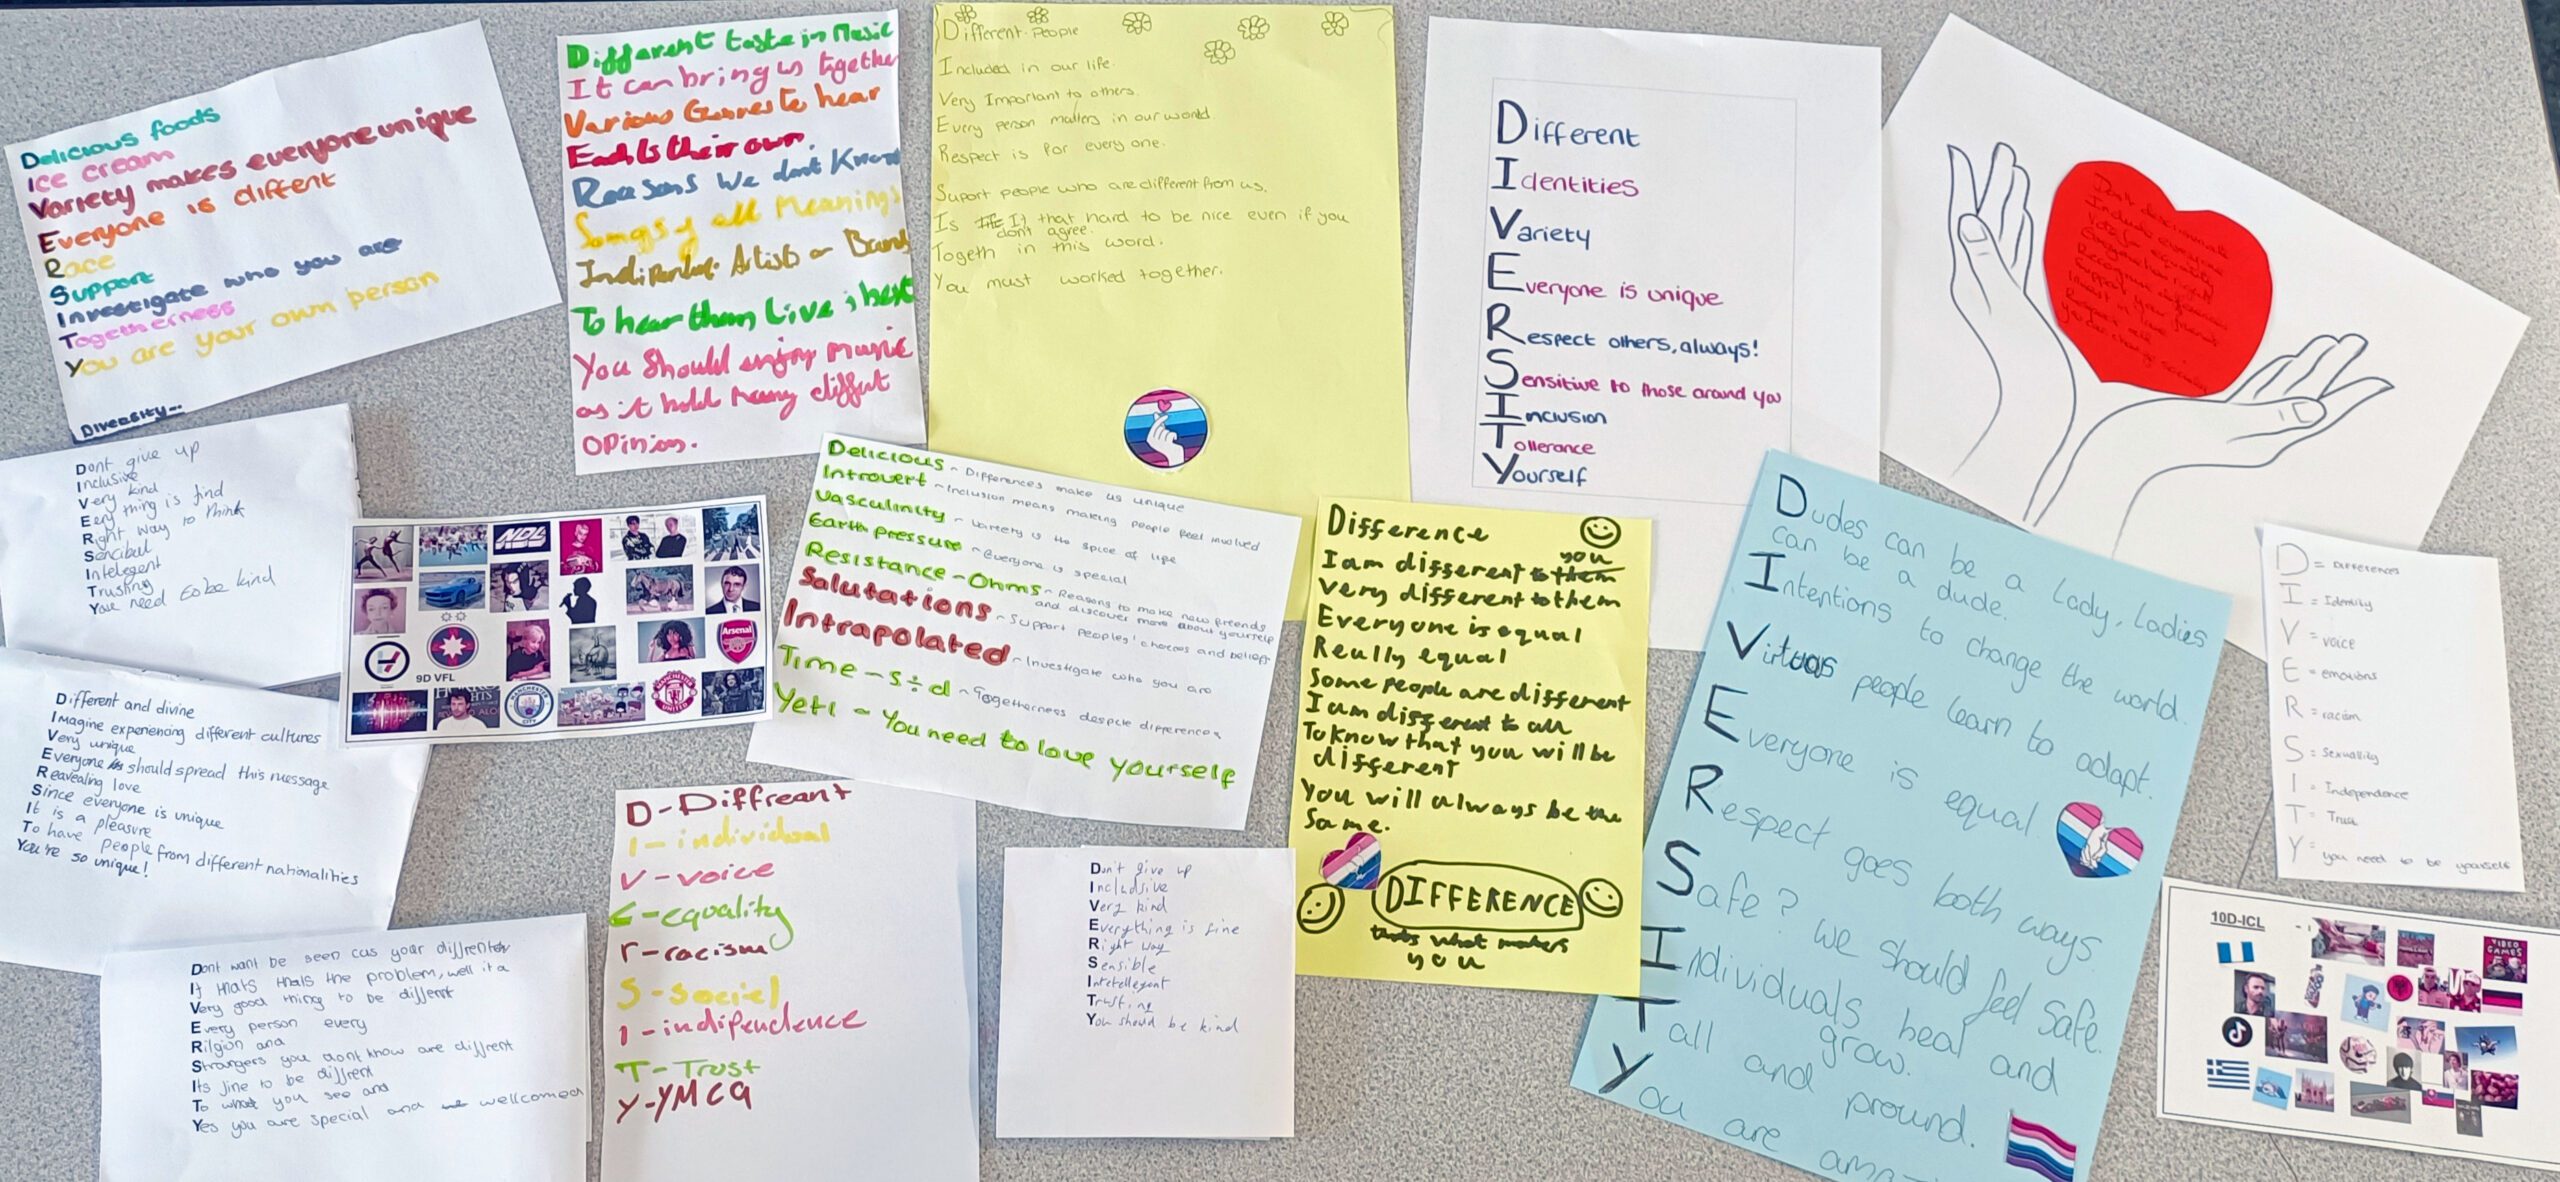 Delicious foods
Ice cream
Variety makes everyone unique
Everyone is diffent
Race
Support
Investigate who you are
Togetherness
You are your own person
Diversity...
Different taste in Music
It can bring us together
Various Genres to hear
Each to their own.
Reasons We dont Know
Songs of all Meanings
Artists or Bands
To hear them Live is best
You Should enjoy music
as it hold many diffent
Opinions.
Different People
Included in our life.
Very Important to others.
Every person matters in our world.
Respect is for every one.
Suport people who are different from us.
Is It that hard to be nice even if you
don't agree.
Togeth in this word.
You must worked together.
Different
Identities
Variety
Everyone is unique
Respect others, always!
Sensitive to those around you
Inclusion
Tollerance
Yourself
Don't discriminate
Include everyone
Vote for equality
Recognise differences
Support your friends
Invest in love
Respect all
You can change society
Dont give up
Inclusive
Very kind
Eery thing is find
Right way to think
Sencibul
Intelegent
Trusting
You need to be kind
NDL
Arsenal
9D VFL
MANCHESTER CITY
MANCHESTER UNITED
Delicious ~ Differences make us unique
Introvert ~ Inclusion means making people feel involved
Vasculinity ~ Variety is the spice of life
Earth pressure ~ Everyone is special
Resistance - Ohms ~ Reasons to make new freends
and discover more about yourself
Salutations ~ Support peoples' choices and beliefs
Intrapolated ~ Investigate who you are
Time - s÷d ~ Togetherness despite differences
Yeti ~ You need to love yourself
Difference
you
I am different to them
Very different to them
Everyone is equal
Really equal
Some people are different
I am different to all
To know that you will be
different
You will always be the
Same.
DIFFERENCE
thats what makes
you
Dudes can be a Lady, Ladies
can be a dude.
Intentions to change the world.
Virtuos people learn to adapt.
Everyone is equal
Respect goes both ways
Safe? We should feel safe.
Individuals heal and
grow.
Tall and pround.
You are
D = Differences
I = Identity
V = voice
E = emotions
R = racism
S = sexuallity
I = Independence
T = Trust
Y = you need to be yourself
Different and divine
Imagine experiencing different cultures
Very unique
Everyone should spread this message
Reavealing love
Since everyone is unique
It is a pleasure
To have people from different nationalities
You're so unique!
D - Diffreant
I - individual
V - voice
E - equality
r - racism
S - social
I - indipendence
T - Trust
Y - YMCA
Don't give up
Includsive
Very kind
Everything is fine
Right way
Sensible
Intetellegent
Trusting
You should be kind
Dont want be seen cas your diffrent
If thats thats the problem, well it a
Very good thing to be diffent
Every person every
Riligion and
Strangers you dont know are diffrent
Its fine to be diffrent
To what you see and
Yes you are special and wellcomed
10D-ICL
VIDEO GAMES